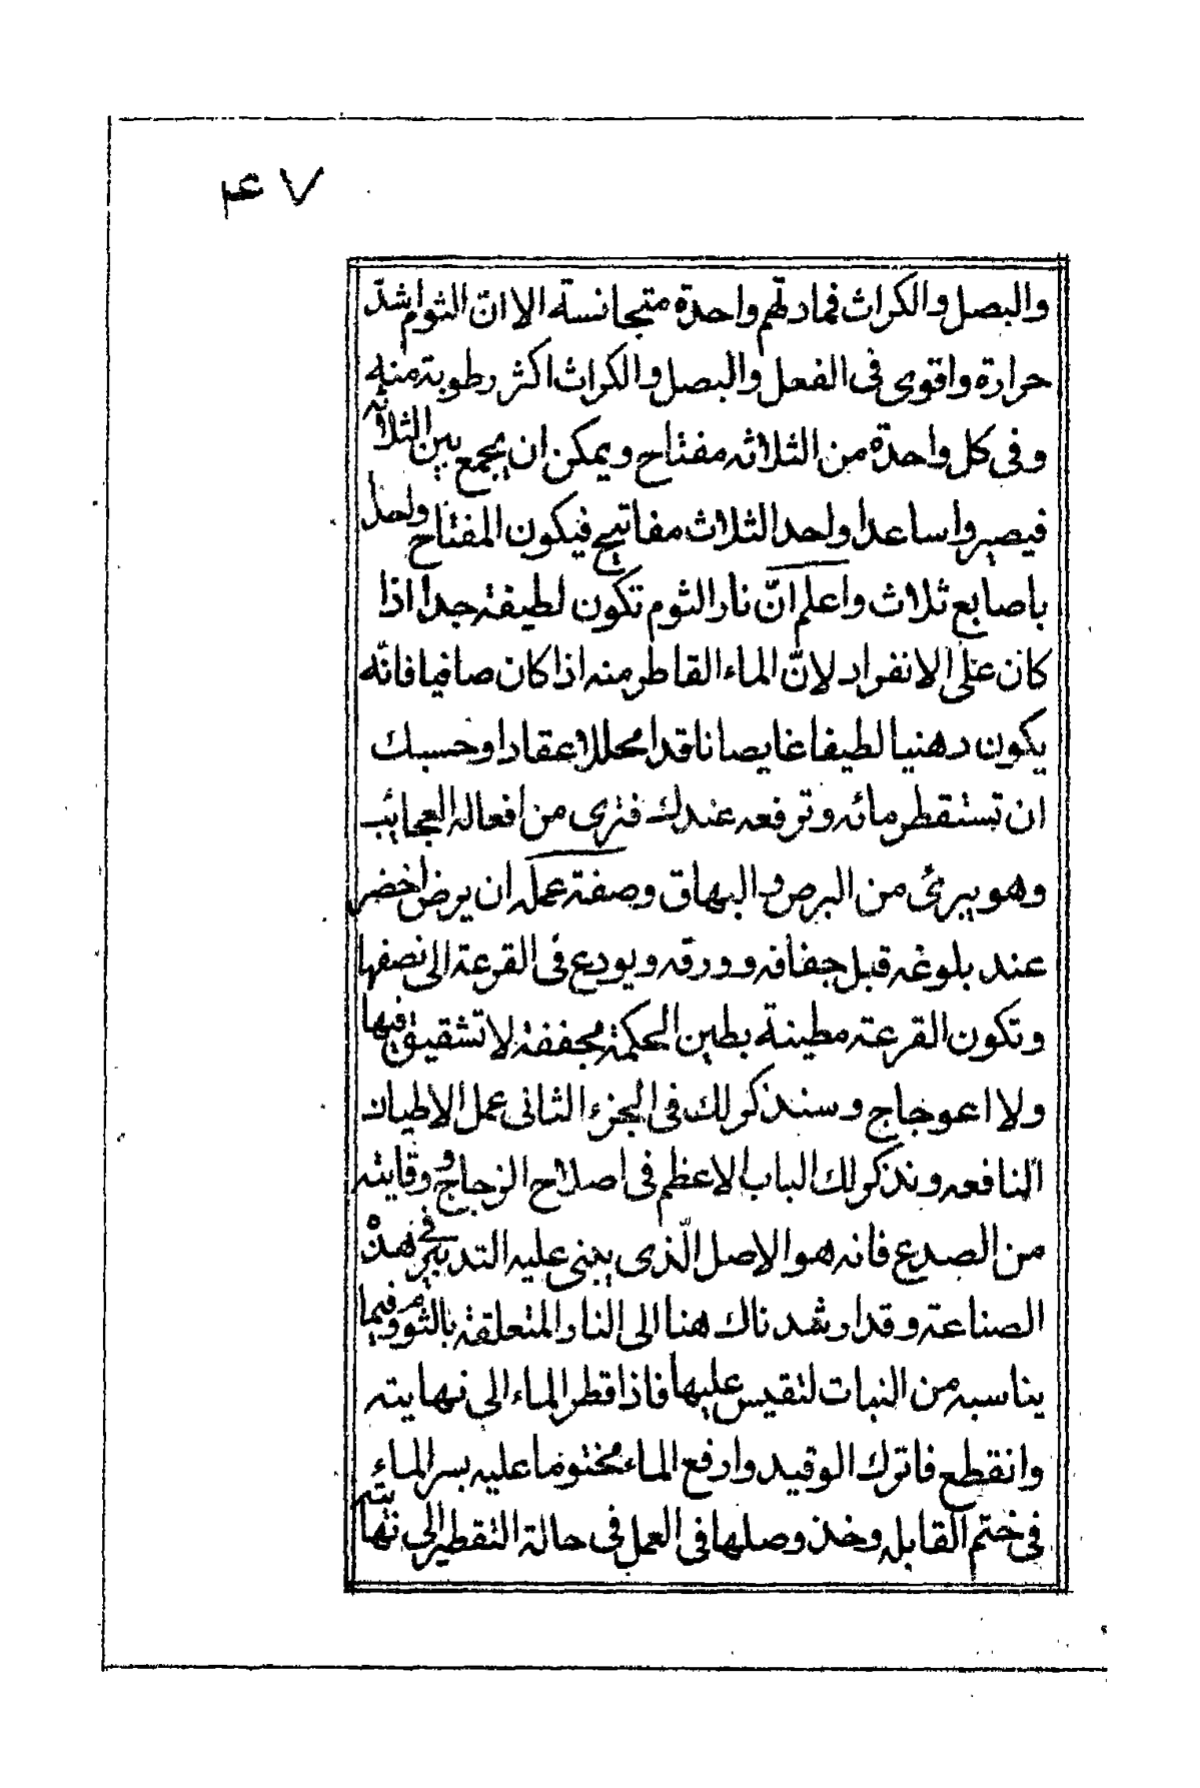 ۴۷
والبصل والكراث فمادتهم واحدة متجانسة الا انّ الثوم اشدّ
حرارة واقوى فى الفعل والبصل والكراث اكثر رطوبة منه
وفى كل واحدة من الثلاثه مفتاح ويمكن ان يجمع بين الثلاثه
فيصيروا ساعدا واحد الثلاث مفاتيح فيكون المفتاح واحدا
باصابع ثلاث واعلم انّ نار الثوم تكون لطيفة جدا اذا
كان على الانفراد لانّ الماء القاطر منه اذا كان صافيا فانّه
يكون دهنيا لطيفا غايصا ناقدا محللا عقادا وحسبك
ان تستقطر مائه وترفعه عندك فترى من افعاله العجائب
وهو يبرئ من البرص والبهاق وصفة عمله ان يرض اخضر
عند بلوغه قبل جفافه وورقه ويودع فى القرعة الى نصفها
وتكون القرعة مطينة بطين الحكمة مجففة لا تشقيق فيها
ولا اعوجاج وسنذكر لك فى الجزء الثانى عمل الاطيان
النافعه ونذكر لك الباب الاعظم فى اصلاح الزجاج ووقايته
من الصدع فانه هو الاصل الّذى يبنى عليه التدبير فى هذه
الصناعة وقد ارشدناك هنا الى النار المتعلقة بالثوم وفيما
يناسبه من النبات لتقيس عليها فاذا قطر الماء الى نهايته
وانقطع فاترك الوقيد وارفع الماء مختوما عليه بسر الماء
فى ختم القابله وخذ وصلها فى العمل فى حالة التقطير الى نهايته